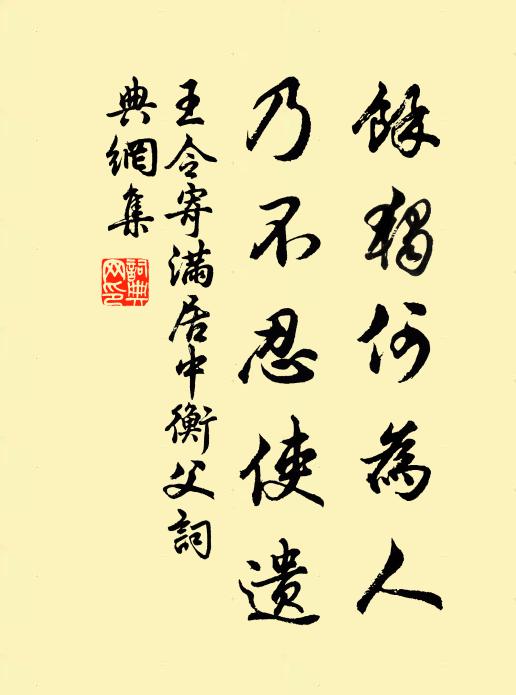 餘獨何為人
乃不忍使遺
王令寄滿居中衡父詞
典網集
詞典
网印